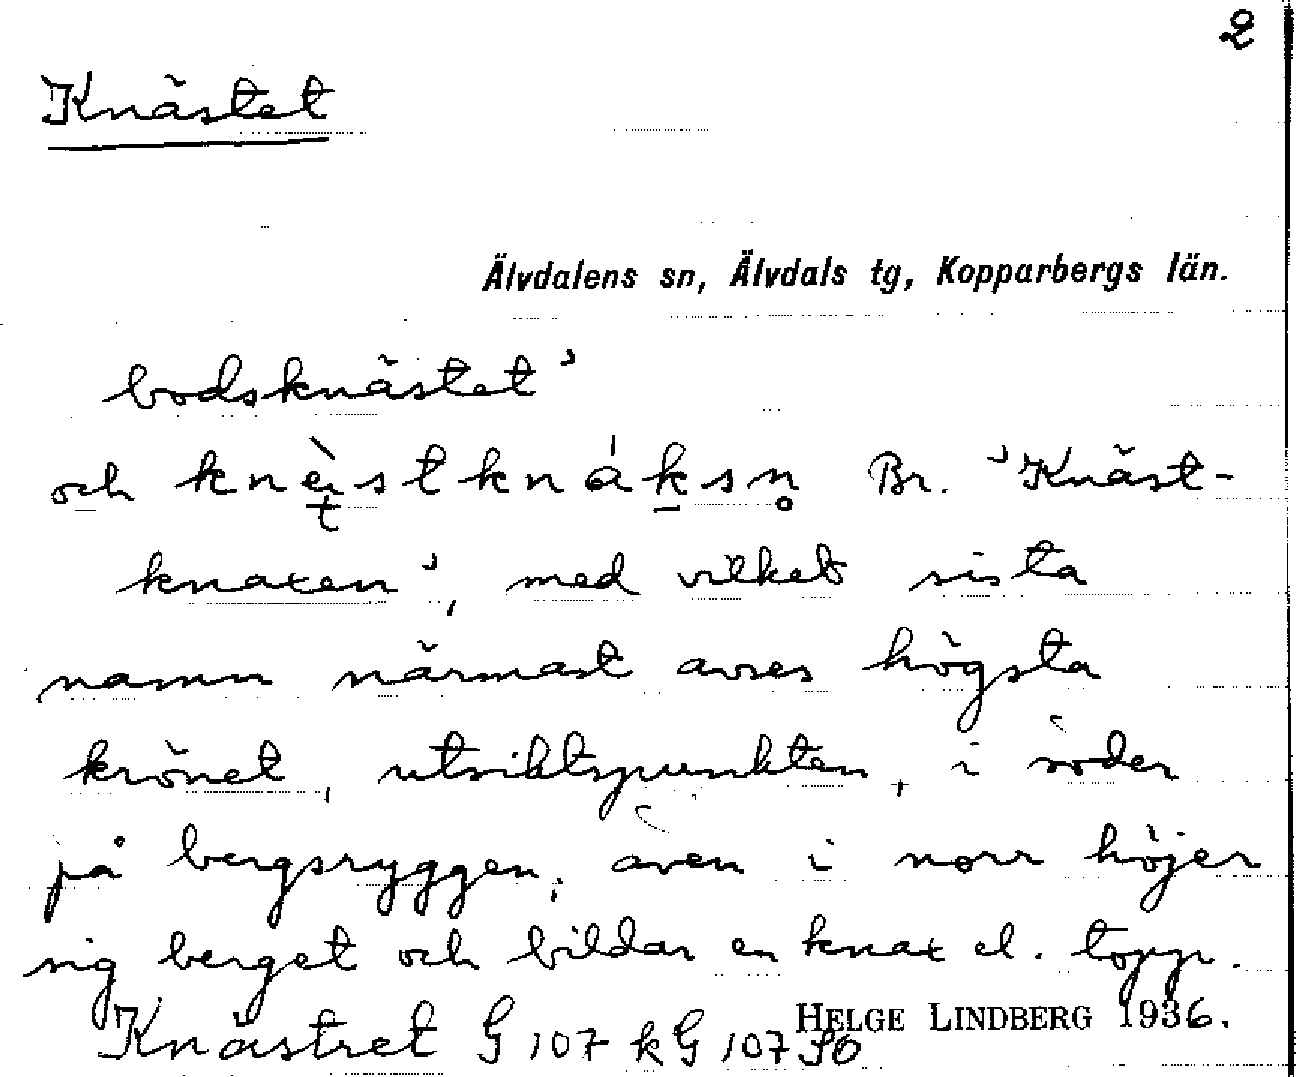 2
Knästet
Älvdalens sn, Älvdals tg, Kopparbergs län.
bodsknästet’
och knæ̀stknák̲sn̥ Br. ’Knäst-
knaxen’, med vilket sista
namn närmast avses högsta
krönet, utsiktspunkten, i söder
på bergsryggen; även i norr höjer
sig berget och bildar en knax el. topp.
HELGE LINDBERG 1936.
Knästret G 107 k G 107 So